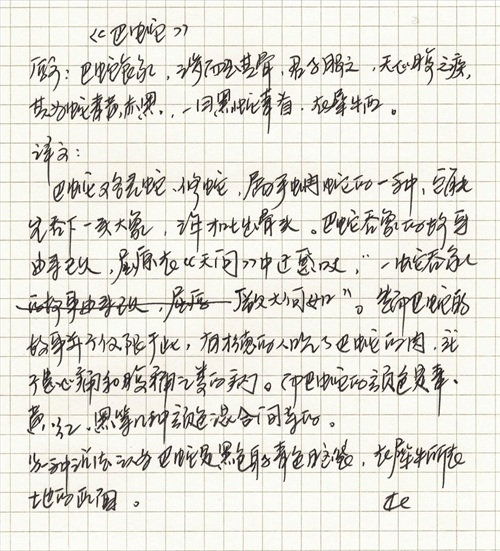 《巴蛇》
原文：巴蛇食象，三岁而出其骨，君子服之，无心腹之疾，
其为蛇青黄赤黑，一曰黑蛇青首，在犀牛西。
译文：
巴蛇又名灵蛇、修蛇，属于蚺蛇的一种，它能
先吞下一头大象，三年和吐出骨头。巴蛇吞象的故事
由来已久，屈原在《天问》中还感叹，“一蛇吞象
厥大何如”。关于巴蛇的
故事并不仅限于此，有才德的人吃了巴蛇的肉，就
不患心痛和腹痛之类的病。而巴蛇的颜色是青、
黄、红、黑等几种颜色混合而成的。
另一种说法认为巴蛇是黑色身子青色脑袋，在犀牛所在
地的西面。